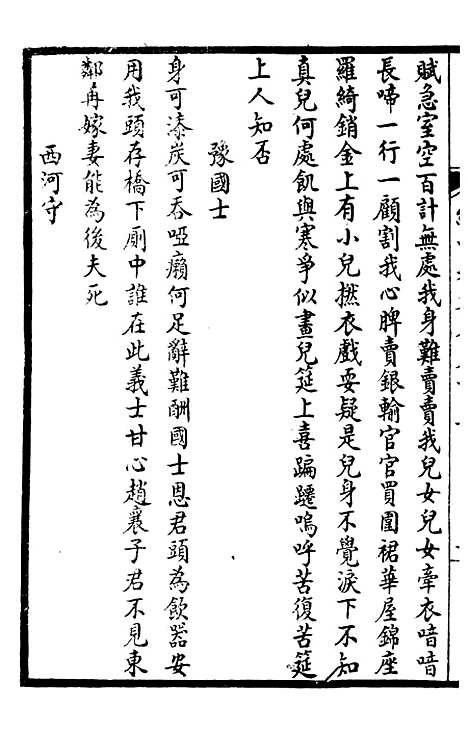 賦急室空百計無處我身難賣賣我兒女兒女牽衣喑喑
長啼一行一顧割我心脾賣銀輸官官買圍裙華屋錦座
羅綺銷金上有小兒撚衣戲耍疑是兒身不覺淚下不知
真兒何處飢與寒爭似畫兒筵上喜蹁躚嗚呼苦復苦筵
上人知否
豫國士
身可漆炭可吞啞癩何足辭難酬國士恩君頭為飲器安
用我頭存橋下廁中誰在此義士甘心趙襄子君不見東
鄰再嫁妻能為後夫死
西河守